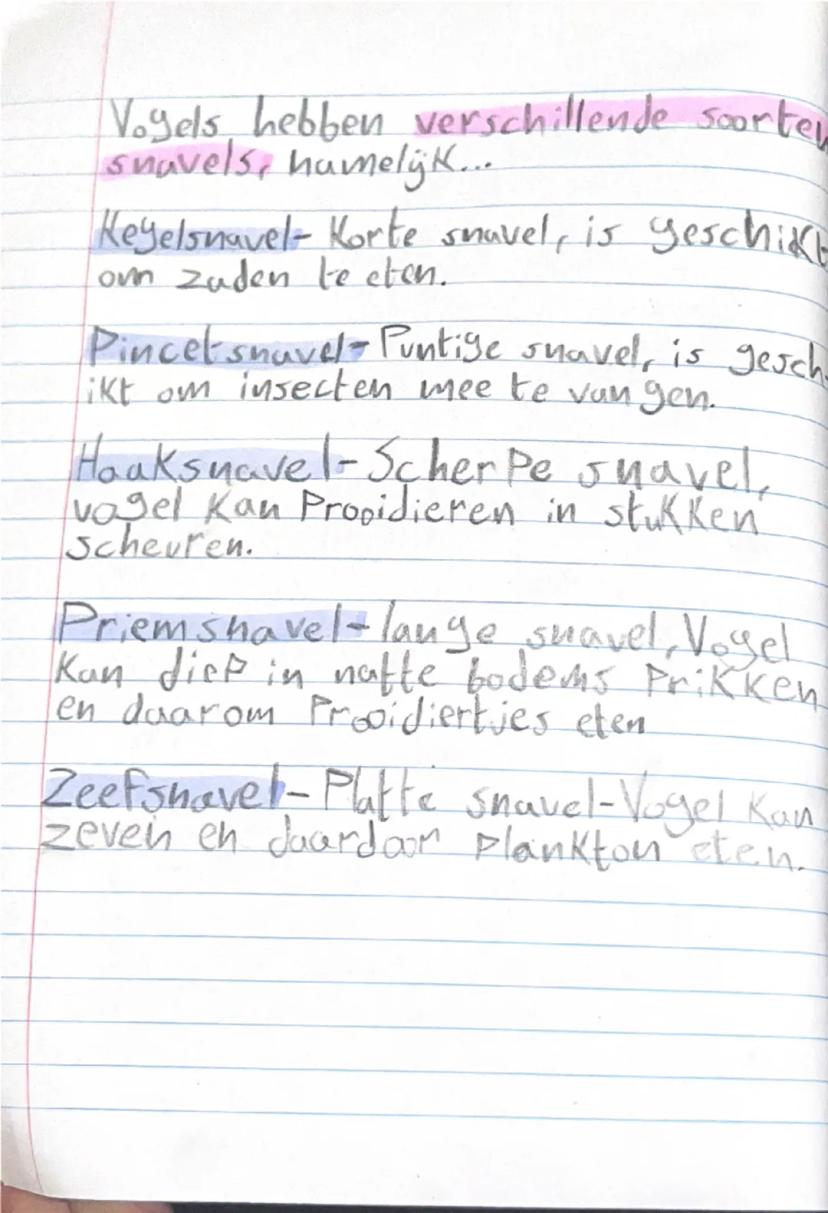 Vogels hebben verschillende soorten
snavels, namelijk...
Kegelsnavel- Korte snavel, is geschikt
om zaden te eten.
Pincetsnavel- Puntige snavel, is gesch-
ikt om insecten mee te vangen.
Haaksnavel- Scherpe snavel,
vogel kan Prooidieren in stukken
scheuren.
Priemsnavel- lange snavel, Vogel
kan diep in natte bodems Prikken
en daarom Prooidiertjes eten
Zeefsnavel- Platte snavel-Vogel kan
zeven en daardoor plankton eten.